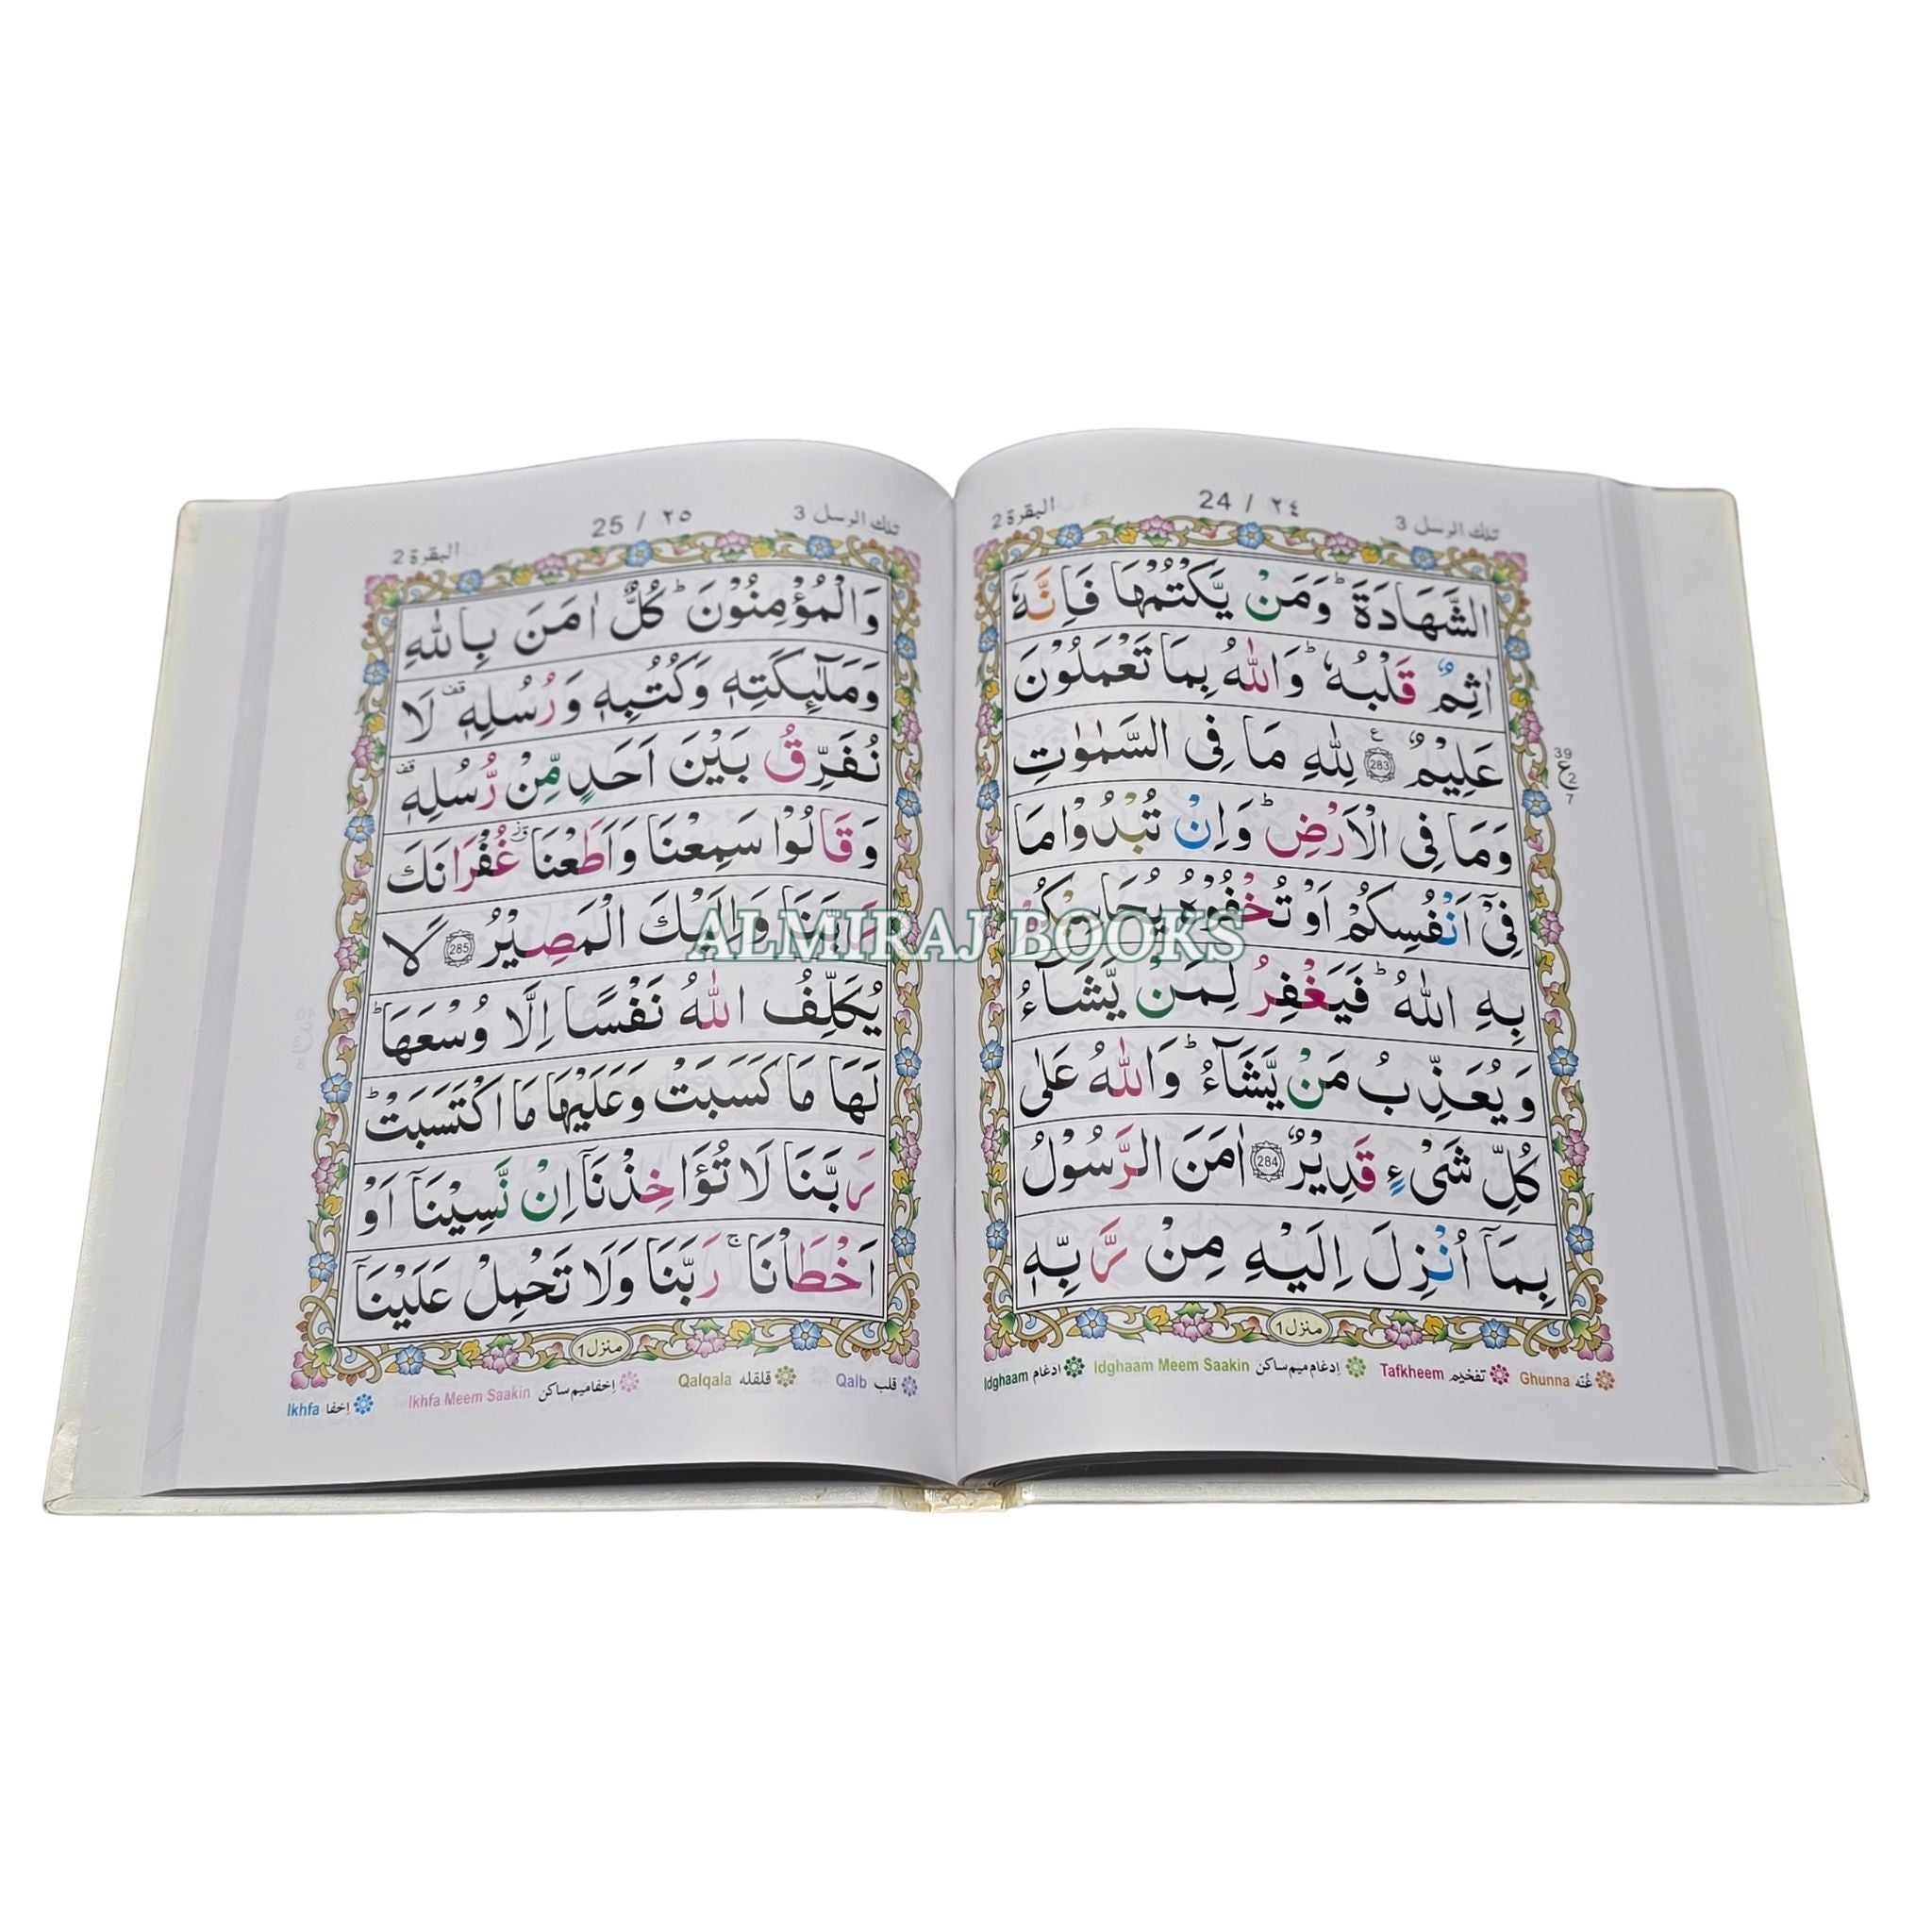 تلك الرسل 3
24 / ٢٤
البقرة 2
الشَّهَادَةَ ؕ وَمَنْ يَّكْتُمْهَا فَاِنَّهٗۤ
اٰثِمٌ قَلْبُهٗ ؕ وَاللّٰهُ بِمَا تَعْمَلُوْنَ
عَلِيْمٌ 283 ع لِلّٰهِ مَا فِى السَّمٰوٰتِ
وَمَا فِى الْاَرْضِ ؕ وَاِنْ تُبْدُوْا مَا
فِىْۤ اَنْفُسِكُمْ اَوْ تُخْفُوْهُ يُحَاسِبْكُمْ
بِهِ اللّٰهُ ؕ فَيَغْفِرُ لِمَنْ يَّشَآءُ
وَيُعَذِّبُ مَنْ يَّشَآءُ ؕ وَاللّٰهُ عَلٰى
كُلِّ شَىْءٍ قَدِيْرٌ 284 اٰمَنَ الرَّسُوْلُ
بِمَاۤ اُنْزِلَ اِلَيْهِ مِنْ رَّبِّهٖ
39
ع 2
7
منزل 1
غُنّه Ghunna
تفخيم Tafkheem
اِدغام ميم ساكن Idghaam Meem Saakin
ادغام Idghaam
تلك الرسل 3
25 / ٢٥
البقرة 2
وَالْمُؤْمِنُوْنَ ؕ كُلٌّ اٰمَنَ بِاللّٰهِ
وَمَلٰٓئِكَتِهٖ وَكُتُبِهٖ وَرُسُلِهٖ قف لَا
نُفَرِّقُ بَيْنَ اَحَدٍ مِّنْ رُّسُلِهٖ قف
وَقَالُوْا سَمِعْنَا وَاَطَعْنَا غُفْرَانَكَ
رَبَّنَا وَاِلَيْكَ الْمَصِيْرُ 285 لَا
يُكَلِّفُ اللّٰهُ نَفْسًا اِلَّا وُسْعَهَا ؕ
لَهَا مَا كَسَبَتْ وَعَلَيْهَا مَا اكْتَسَبَتْ ؕ
رَبَّنَا لَا تُؤَاخِذْنَاۤ اِنْ نَّسِيْنَاۤ اَوْ
اَخْطَاْنَا ۚ رَبَّنَا وَلَا تَحْمِلْ عَلَيْنَاۤ
منزل 1
قلب Qalb
قلقله Qalqala
اِخفا ميم ساكن Ikhfa Meem Saakin
اِخفا Ikhfa
ALMIRAJ BOOKS